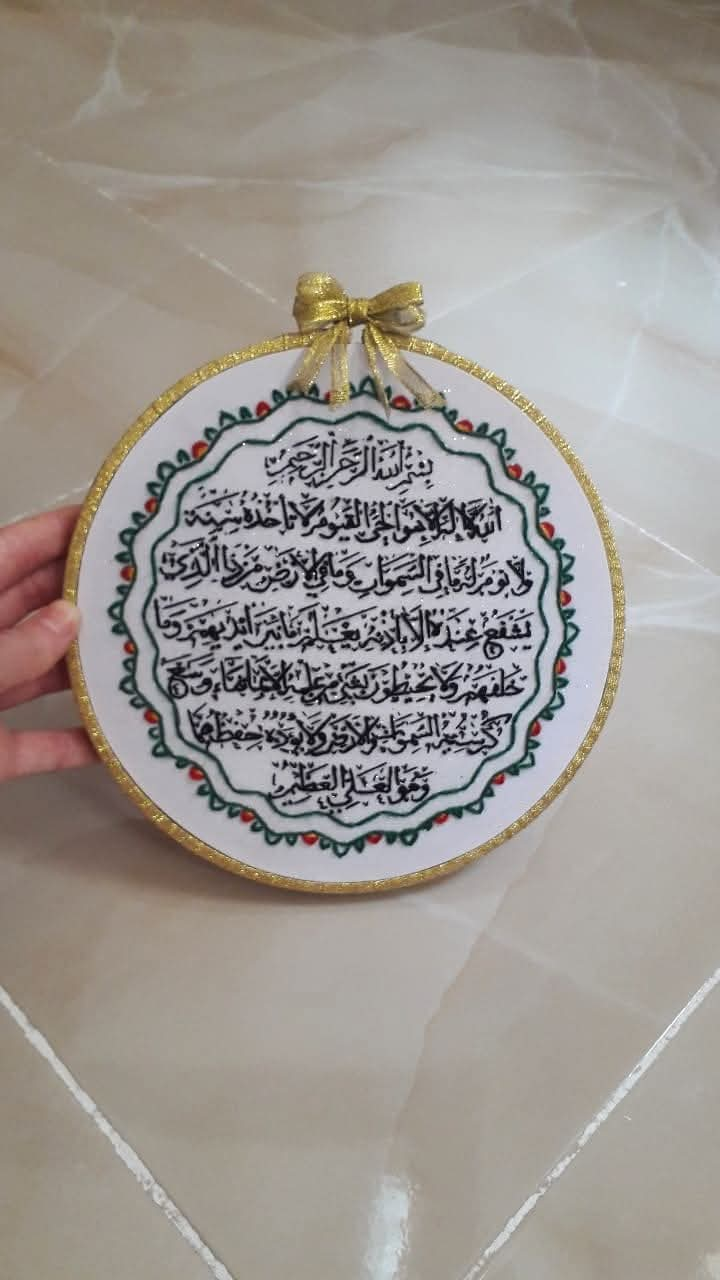 بِسْمِ اللَّهِ الرَّحْمَنِ الرَّحِيمِ
اللَّهُ لَا إِلَهَ إِلَّا هُوَ الْحَيُّ الْقَيُّومُ لَا تَأْخُذُهُ سِنَةٌ
وَلَا نَوْمٌ لَهُ مَا فِي السَّمَوَاتِ وَمَا فِي الْأَرْضِ مَنْ ذَا الَّذِي
يَشْفَعُ عِنْدَهُ إِلَّا بِإِذْنِهِ يَعْلَمُ مَا بَيْنَ أَيْدِيهِمْ وَمَا
خَلْفَهُمْ وَلَا يُحِيطُونَ بِشَيْءٍ مِنْ عِلْمِهِ إِلَّا بِمَا شَاءَ وَسِعَ
كُرْسِيُّهُ السَّمَوَاتِ وَالْأَرْضَ وَلَا يَئُودُهُ حِفْظُهُمَا
وَهُوَ الْعَلِيُّ الْعَظِيمُ